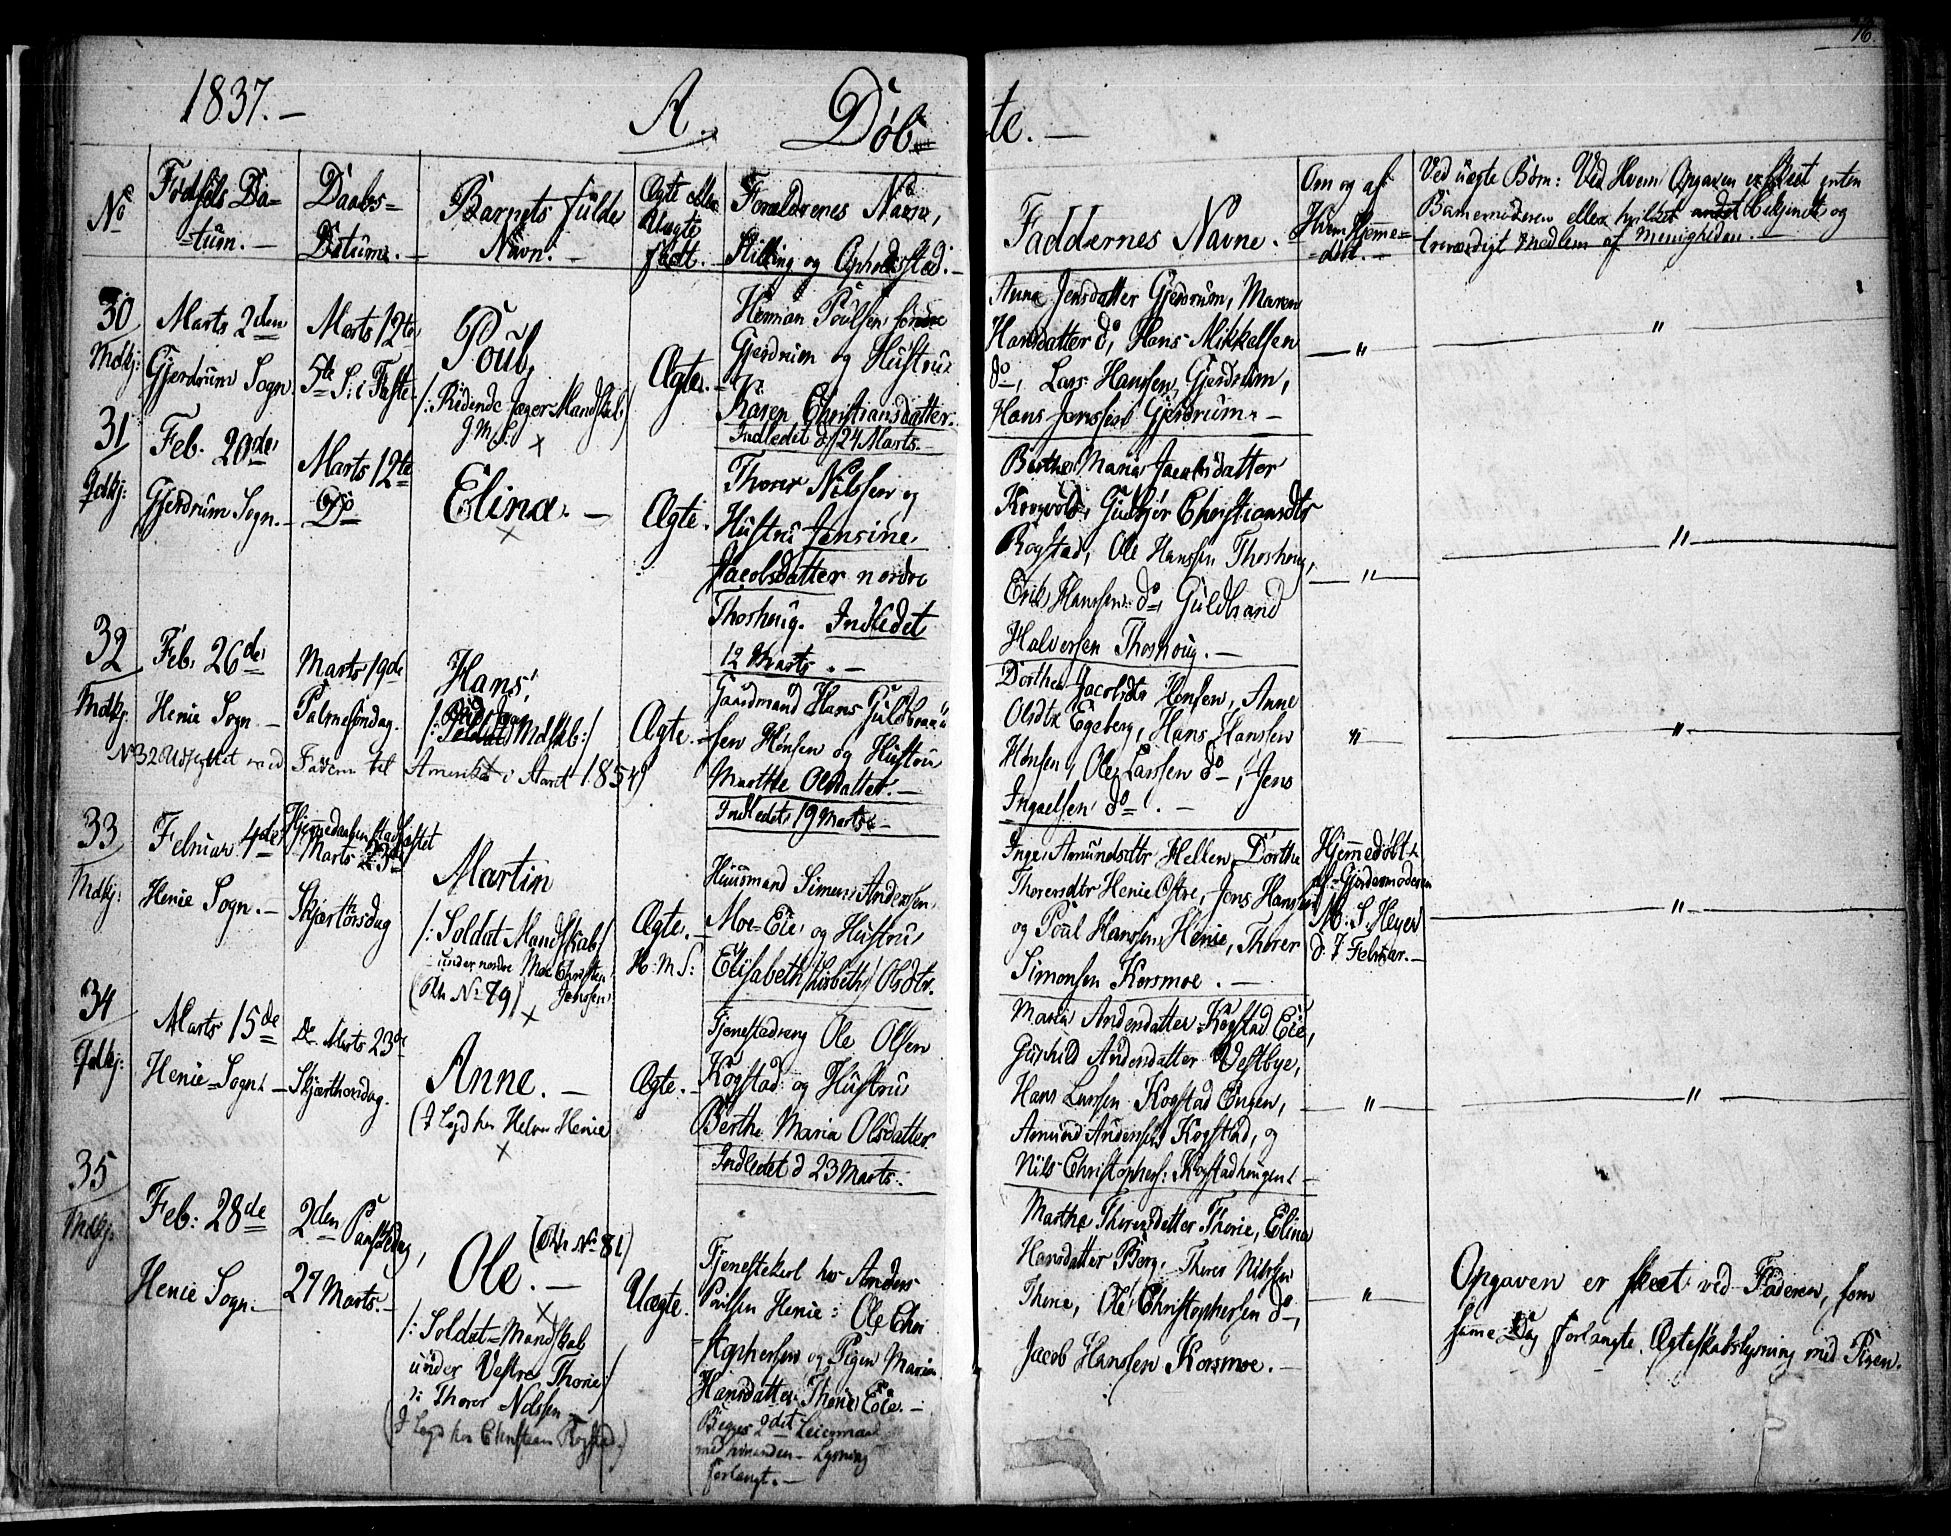 16.
1837.—
A.
Döb=
te.—
No
Fødsels Da=
=tum.—
Daabs=
Datum.—
Barnets fulde
Navn.—
Ægte eller
Uægte
født.—
Forældrenes Navne,
Stilling og Opholdssted.—
Faddernes Navne.
Om og af
Hvem Hjemme=
=døbt.—
Ved uægte Børn: Ved Hvem Opgaven er skeet enten
Barnemoderen eller hvilket andet bekjendt og
troværdigt Medlem af Menigheden.—
30
Mdkj:
Marts 2den
Gjerdrum Sogn
Marts 12te
5te S: i Faste
Poul,
/: Ridende Jæger Mandskab/
Ægte.—
Herman Poulsen søndre
Gjerdrum og Hustru
Karen Christiansdatter.
Indledet d 24 Marts.—
Anne Jensdatter Gjerdrum, Maren
Hansdatter do, Hans Mikkelsen
do, Lars Hanssen Gjerdrum,
Hans Jenssen Gjerdrum.—
—"—
"
31
Qdkj:
Feb. 20de
Gjerdrum Sogn.—
Marts 12te
Do
Elina.—
Ægte.
Thorer Nilssen og
Hustru Jensine
Jacobsdatter nordre
Thoshoug. Indledet
12 Marts.—
Berthe Maria Jacobsdatter
Krogvold, Gudbjør Christiansdtr
Rogstad, Ole Hanssen Thoshoug,
Erik Hanssen do, Guldbrand
Halversen Thoshoug.—
—"—
"
32
Mdkj.
Feb. 26de
Henie Sogn.—
Marts 19de
Palmesøndag.
Hans,
/: Soldat Mdskab:/
Ægte.—
No 32 Udflyttet med Faderen til Amerika i Aaret 1854)
Gaardmand Hans Guldbrand
sen Hønsen og Hustru
Marthe Olsdatter.—
Indledet 19 Marts.—
Dorthea Jacobsdtr Hønsen, Anne
Olsdtr Egeberg, Hans Hanssen
Hønsen, Ole Larssen do, Jens
Ingvelsen do.—
"
"
33
Mdkj:
Februar 4de
Henie Sogn.—
Hjemmedaaben stadfæstet
Marts 23de
Skjærtorsdag
Martin
/: Soldat Mandskab/
under nordre Moe Christen
Jenssen
(Oth No 79)
Ægte.
H: M: S:
Huusmand Simen Andersen
Moe-Eie og Hustru
Elisabeth (Lisbeth) Olsdtr.
Inge Amundsdtr Hellen, Dorthe
Thorersdtr Henie Østre, Jens Hanssen
og Poul Hanssen Henie, Thorer
Simonsen Korsmoe.—
Hjemmedøbt
af Gjordemoderen
M. S. Heyer
d. 7 Februar.—
"
34
Qdkj:
Marts 15de
Henie-Sogn.—
Do Marts 23de
Skjærthorsdag.
Anne.—
(I Lægd hos Helven Henie
Ægte.
Tjenestedreng Ole Olsen
Kogstad og Hustru
Berthe Maria Olsdatter.
Indledet d 23 Marts.
Maria Andersdatter Kogstad Eie,
Gunhild Andersdatter Vestbye,
Hans Larssen Kogstad Engen,
Amund Andersen Kogstad, og
Nils Christophers: Kogstadhougen.—
—"—
"
35
Mdkj.
Feb: 28de
Henie Sogn.—
2den Paaskedag,
27 Marts.—
Ole.—
(Oth No 81)
/: Soldat-Mandskab
under Vestre Thorie/
: Thorer Nilssen
(I Lægd hos Christian Rogstad.)
Uægte.
Tjenestekarl hos Anders
Poulsen Henie: Ole Chri
stophersen og Pigen Maria
Hansdatter Thorie Eie.—
Begges 2det Leiermaal
med hinanden. Lysning
forlangt.—
Marthe Thorersdatter Thorie, Elina
Hansdatter Berg, Thorer Nilssen
Thorie, Ole Christophersen do,
Jacob Hanssen Korsmoe.—
"
Opgaven er skeet ved Faderen, som
samme Dag forlangte Ægteskabslysning med Pigen.